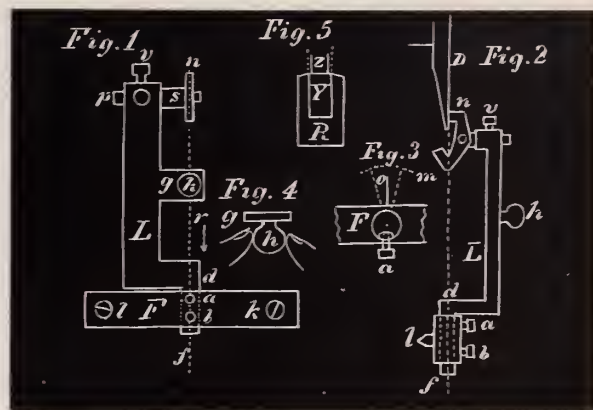 Fig. 1
v
n
p
s
g
h
L
r
d
l
F
a
b
k
f
Fig. 5
z
Y
R
Fig. 4
g
h
Fig. 3
o
m
F
a
D
Fig. 2
n
v
h
L
d
l
a
b
f